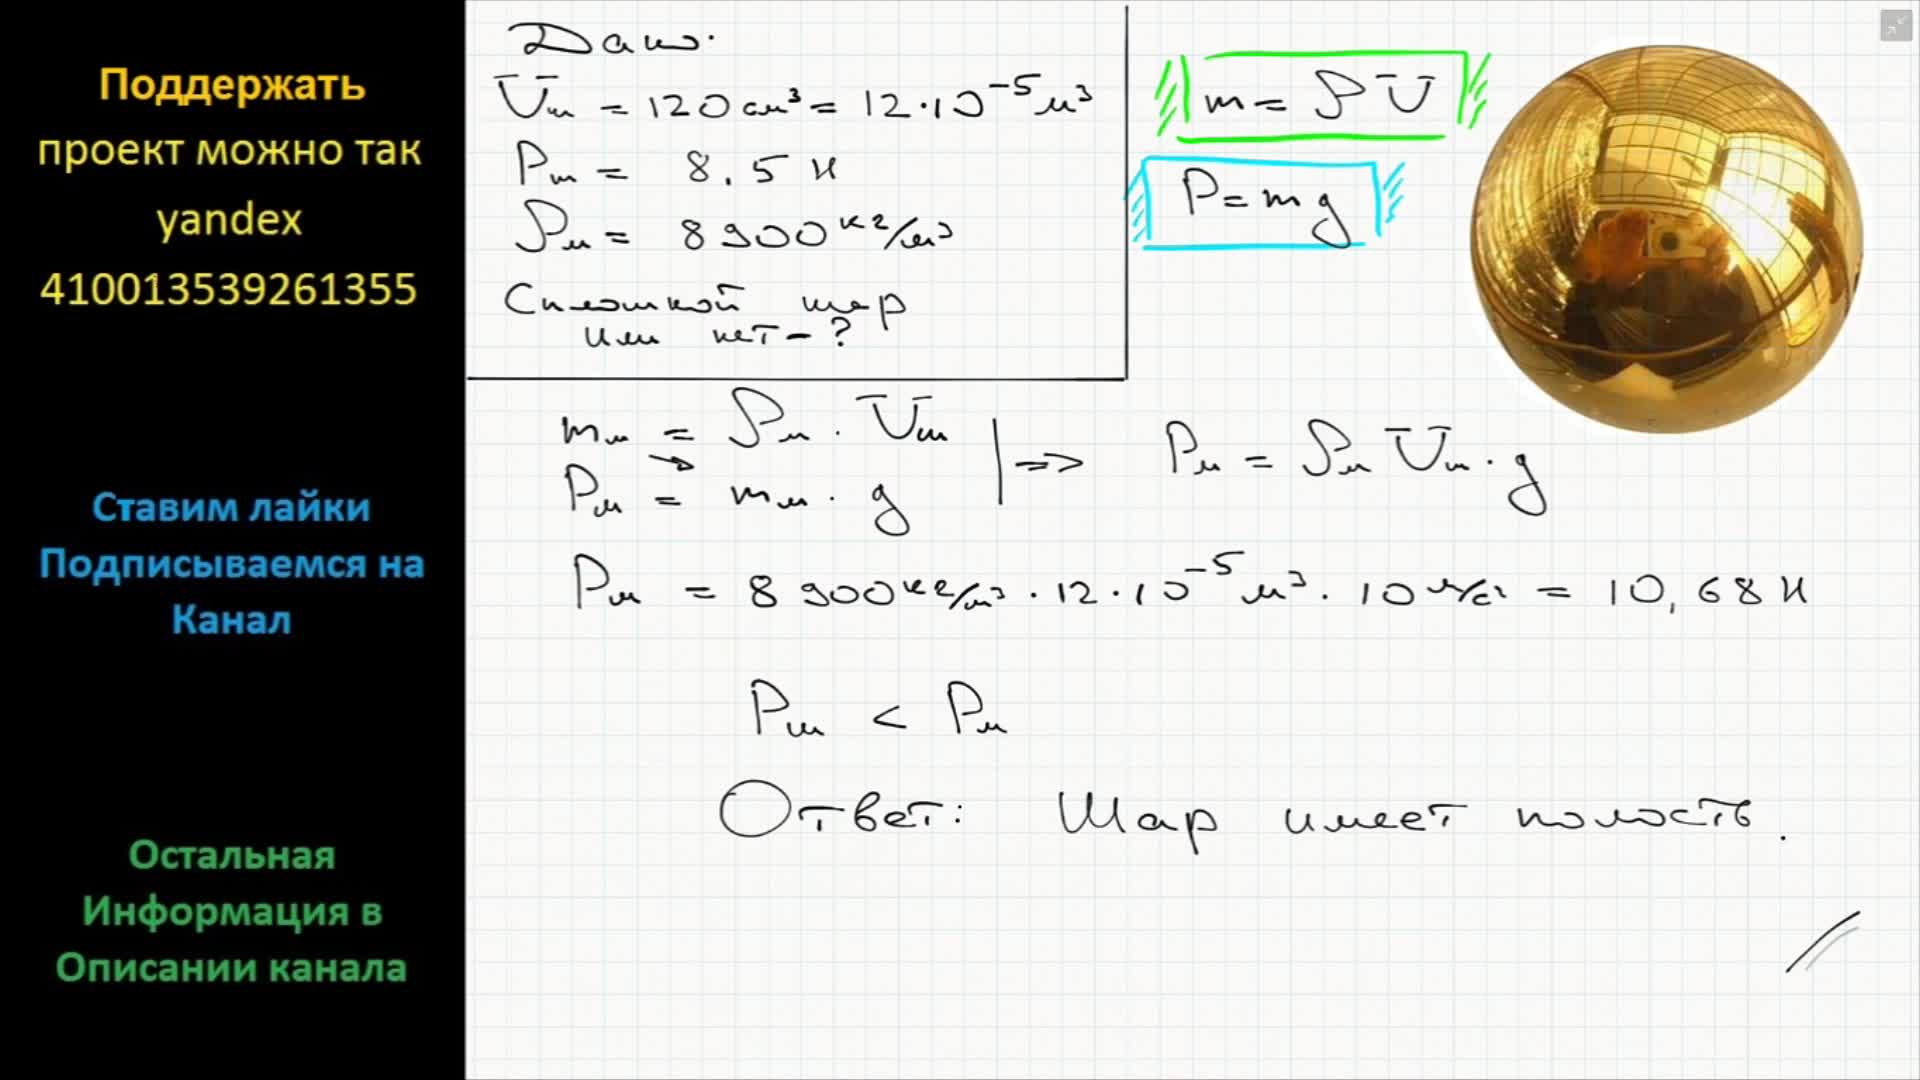 Поддержать
проект можно так
yandex
410013539261355
Ставим лайки
Подписываемся на
Канал
Остальная
Информация в
Описании канала
Дано:
Vш = 120 см³ = 12·10⁻⁵ м³
Pш = 8.5 Н
ρм = 8900 кг/м³
Сплошной шар
или нет - ?
m = ρV
P = mg
mм = ρм · Vш
Pм = mм · g
=> Pм = ρм Vш · g
Pм = 8900 кг/м³ · 12·10⁻⁵ м³ · 10 м/с² = 10,68 Н
Pш < Pм
Ответ: Шар имеет полость.